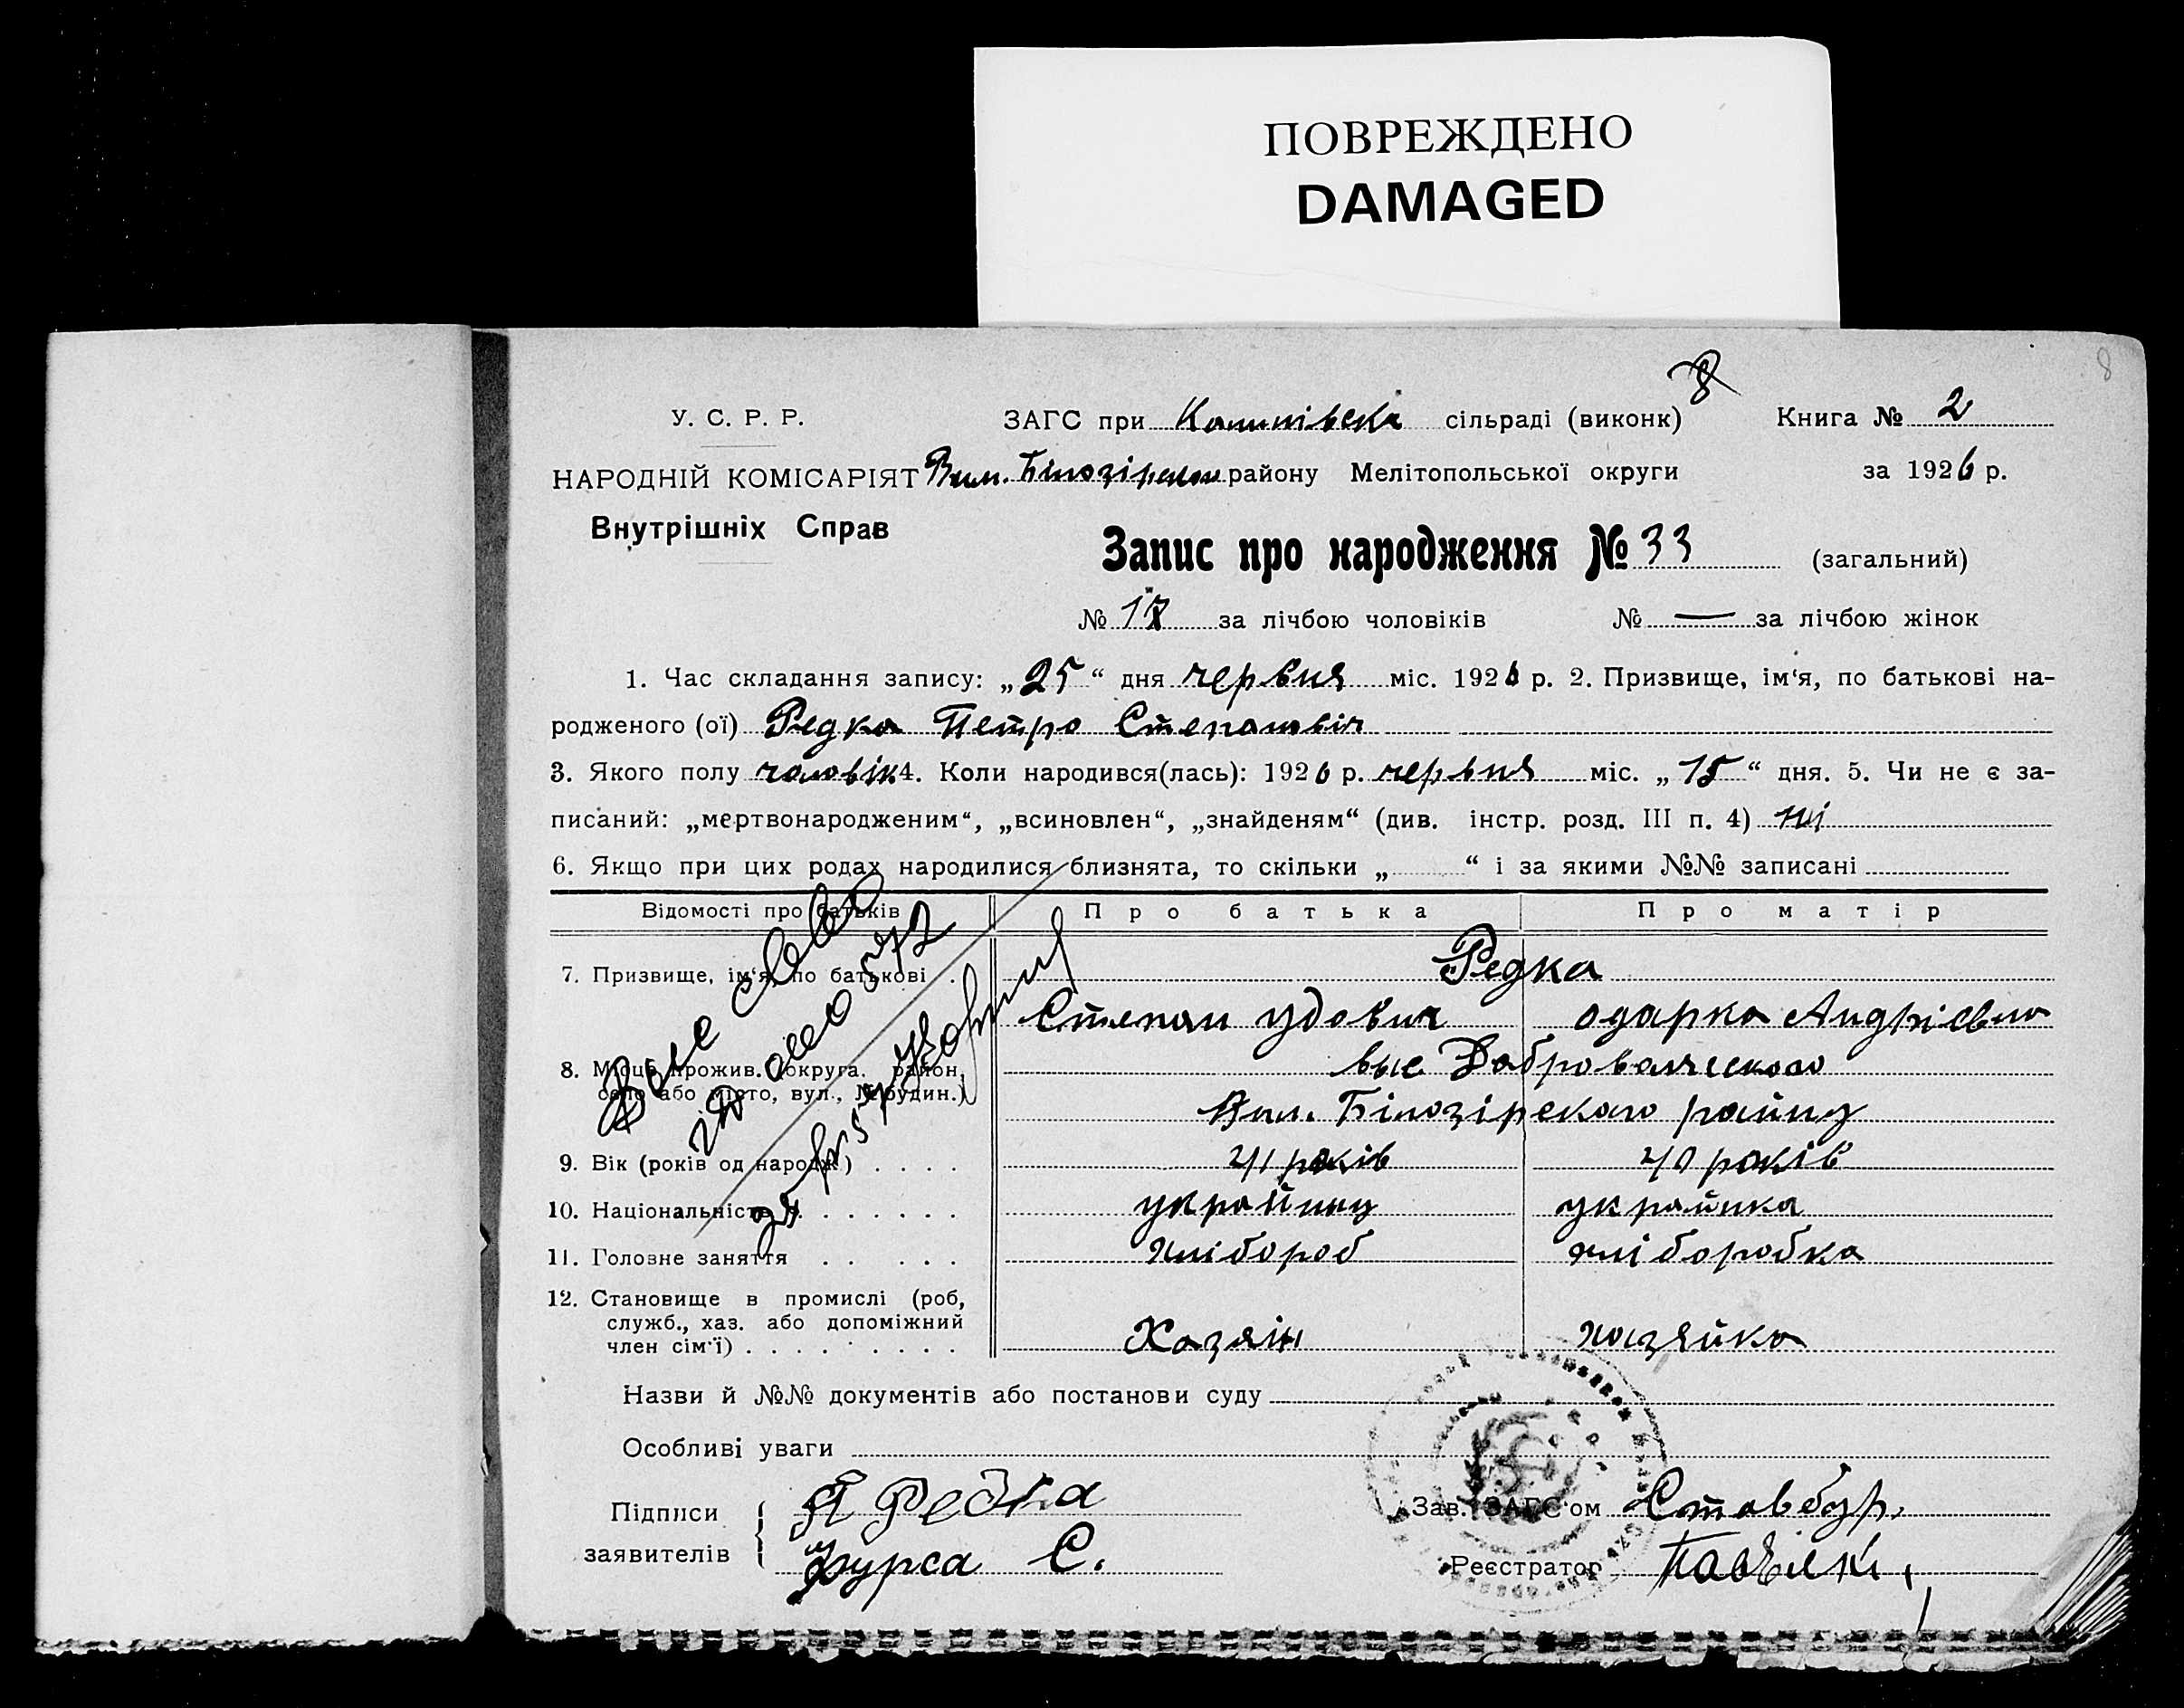 ПОВРЕЖДЕНО
DAMAGED
8
8
У. С. Р. Р. ЗАГС при сільраді (виконк) Книга № 2
НАРОДНІЙ КОМІСАРІЯТ Вел. Білозірського району Мелітопольської округи за 1926 р.
Внутрішніх Справ
Запис про народження № 33 (загальний)
№ 17 за лічбою чоловіків № — за лічбою жінок
1. Час складання запису: „25“ дня червня міс. 1926 р. 2. Призвище, ім‘я, по батькові на-
родженого (ої) Редка Петро Степанович
3. Якого полу чоловік 4. Коли народився(лась): 1926 р. червня міс. „15“ дня. 5. Чи не є за-
писаний: „мертвонародженим“, „всиновлен“, „знайденям“ (див. інстр. розд. III п. 4) ні
6. Якщо при цих родах народилися близнята, то скільки „ “ і за якими №№ записані
Відомості про батьків Про батька Про матір
7. Призвище, ім‘я, по батькові . Редка
Степан удович одарка Андрієвна
8. Місце прожив. (округа, район, выс Добровольческого
село або місто, вул., № будин.)
Вел. Білозірского району
9. Вік (років од народж.) . . . . 41 років 40 років
10. Національність . . . . . . . україинц україинка
11. Головне заняття . . . . . хлібороб хліборобка
12. Становище в промислі (роб,
служб., хаз. або допоміжний
член сім‘ї) . . . . . . . . . . Хазяін хазяйка
Назви й №№ документів або постанови суду
Особливі уваги
Підписи П Редка Зав. ЗАГС‘ом
заявителів Фурса С. Реєстратор